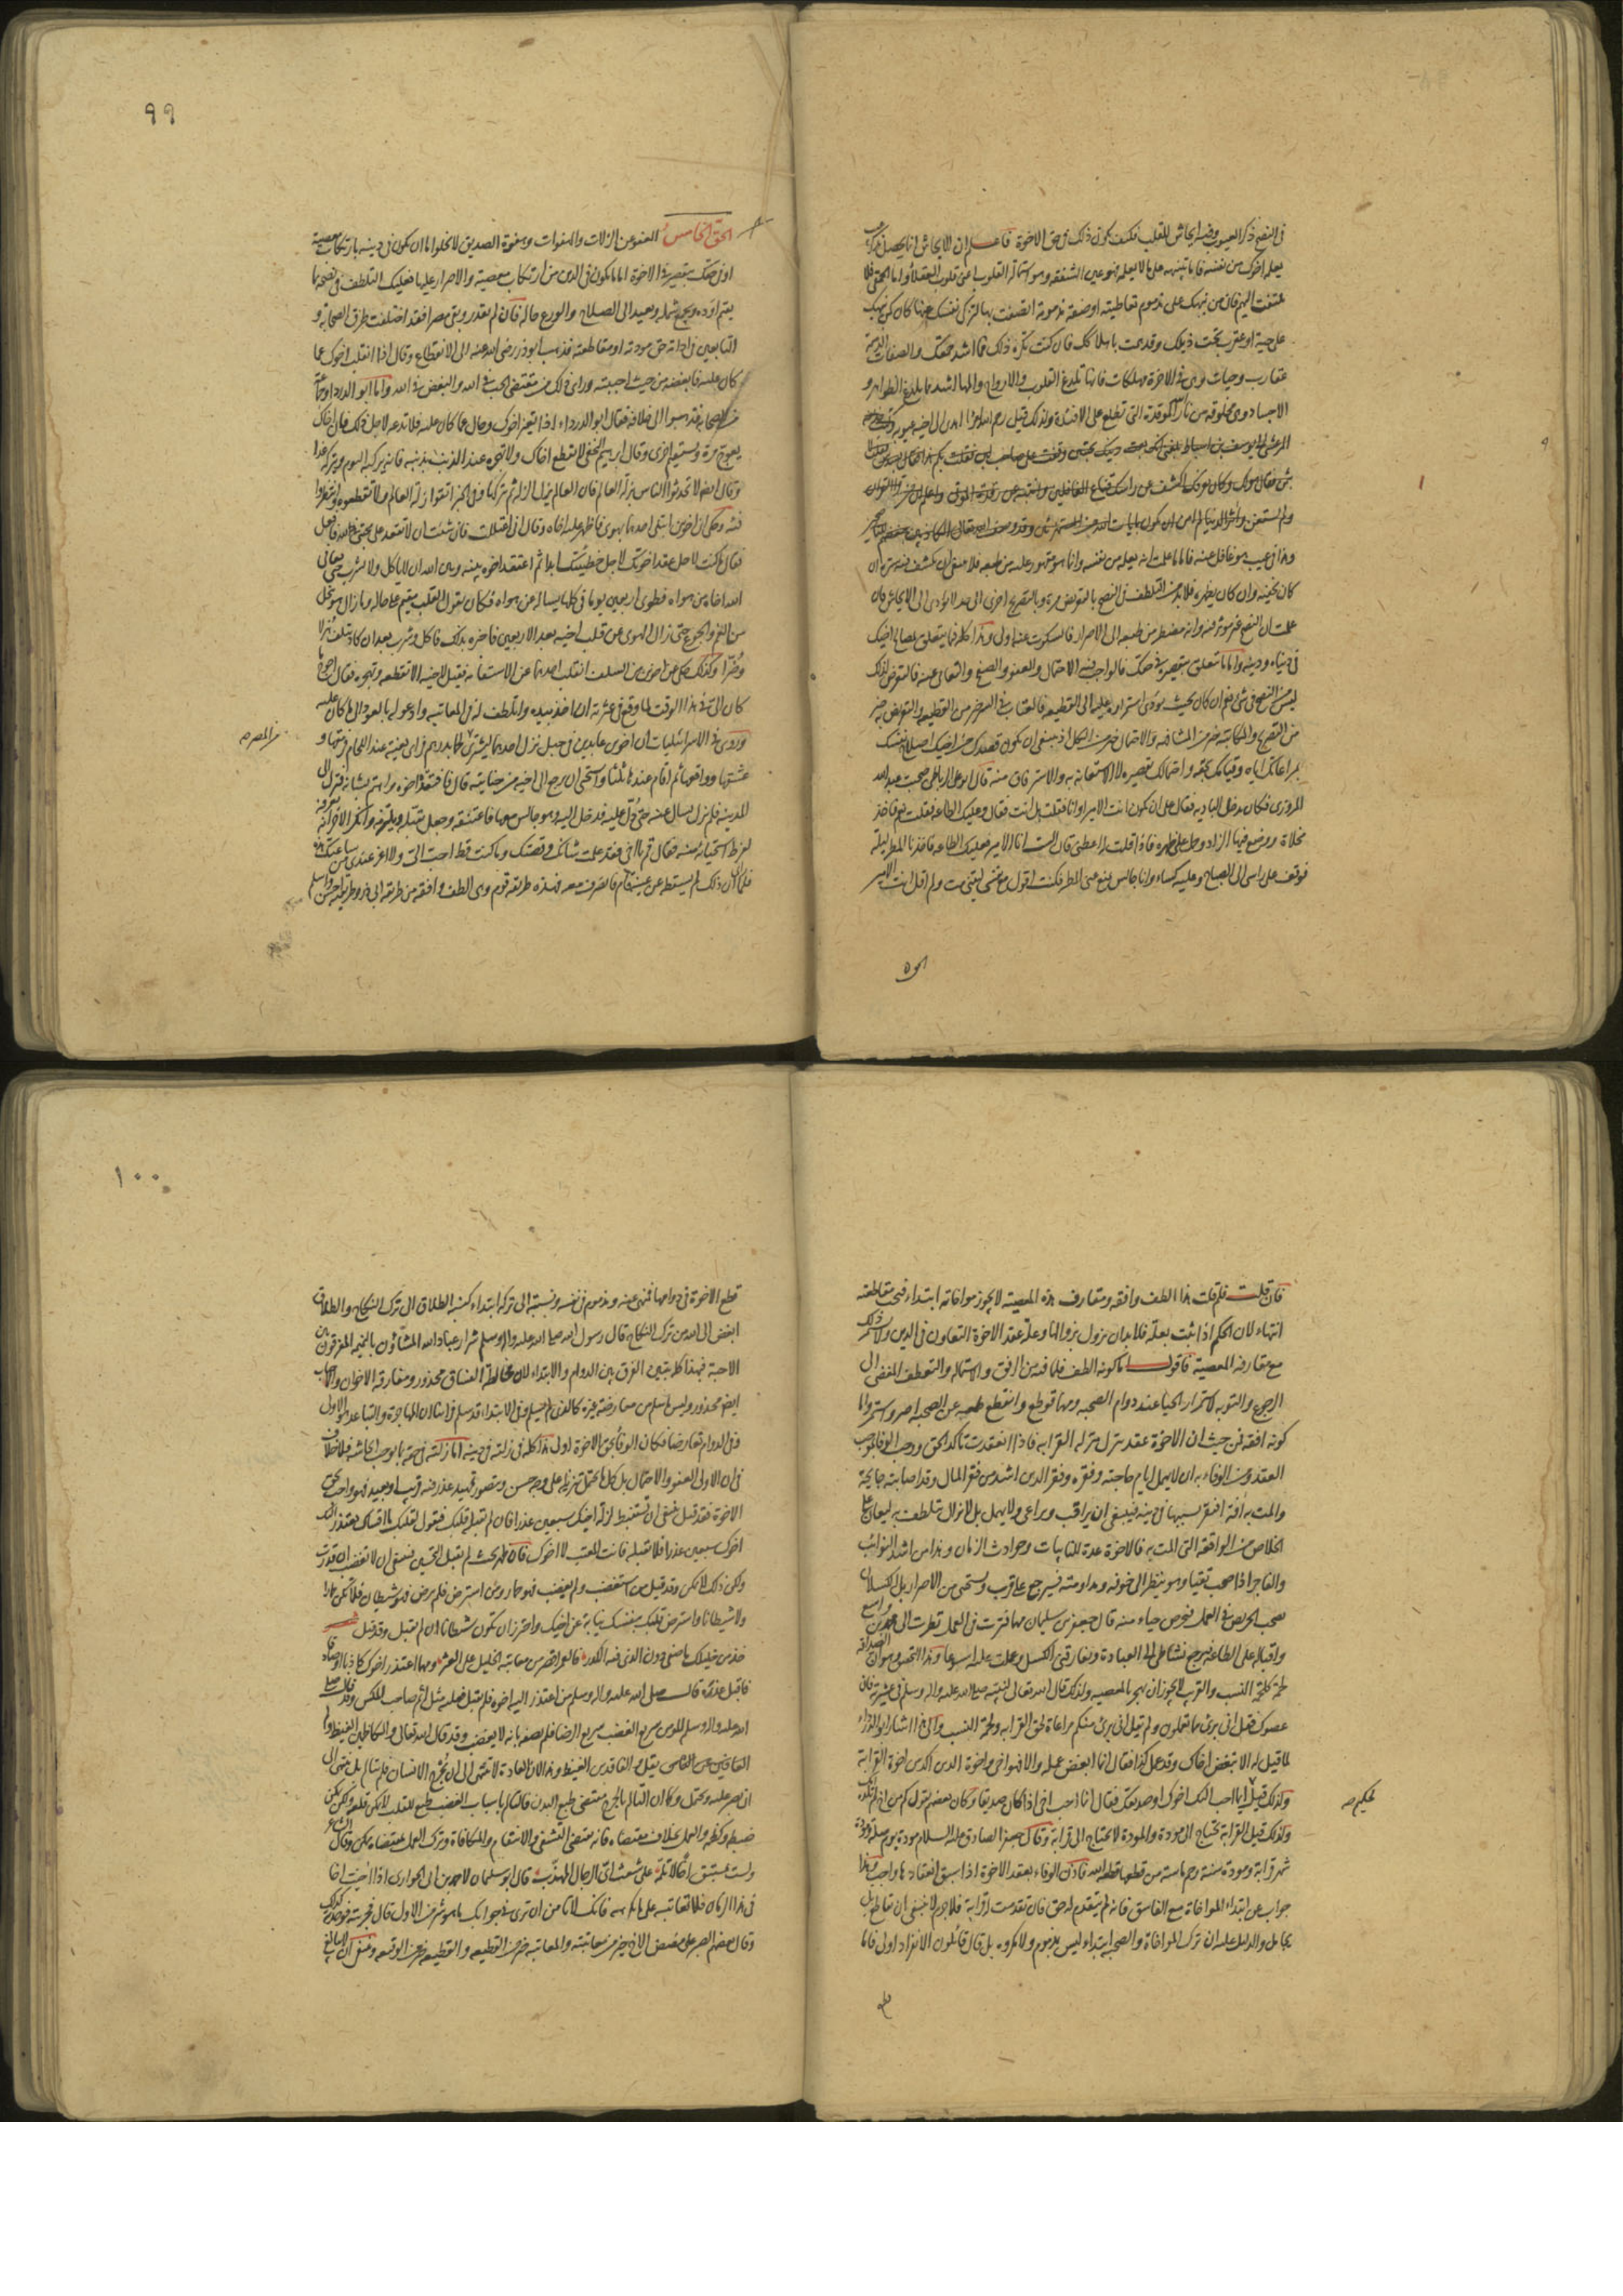 في النصح ذكر العيوب وفيه ايحاش للقلب فكيف يكون ذلك من حق الاخوة فاعلم ان الايحاش انما يحصل بذكر عيب
يعلمه اخوك من نفسه فاما تنبيهه على ما لا يعلمه فهو عين الشفقة وهو استمالة القلوب اعني قلوب العقلاء واما الحمقى فلا
يلتفت اليهم فان من ينبهك على مذموم تعاطيته او صفة مذمومة اتصفت بها لتزكي نفسك عنها كان كمن ينبهك
على حية او عقرب تحت ذيلك وقد همت باهلاكك فان كنت تكره ذلك فما اشد حمقك والصفات الذميمة
عقارب وحيات وهي في الاخرة مهلكات فانها تلدغ القلوب والارواح والمها اشد مما يلدغ الظواهر و
الاجساد وهي مخلوقة من نار الله الموقدة التي تطلع على الافئدة ولذلك قيل رحم الله امرءا اهدى الى اخيه عيوبه وكتب حذيفة
المرعشي الى يوسف بن اسباط بلغني انك بعت دينك بحبتين وقفت على صاحب لبن فقلت بكم هذا فقال بسدس فقلت لا
بثمن فقال هو لك وكان يعرفك اكشف عن راسك قناع الغافلين وانتبه عن رقدة الموتى واعلم ان من قرأ القران
ولم يستغن واثر الدنيا لم امن ان يكون بايات الله من المستهزئين وقد وصف الله تعالى الكاذبين ببغضهم للناصحين
وهذا في عيب هو غافل عنه فاما ما علمت انه يعلمه من نفسه وانما هو مقهور عليه من طبعه فلا ينبغي ان يكشف فيه ستره ان
كان يخفيه وان كان يظهره فلابد من التلطف في النصح بالتعريض مرة وبالتصريح اخرى الى حد لا يؤدي الى الايحاش فان
علمت ان النصح غير مؤثر فيه وانه مضطر من طبعه الى الاصرار فالسكوت عنه اولى وهذا كله فيما يتعلق بمصالح اخيك
في دنياه ودينه واما ما تتعلق بتقصيره في حقك فالواجب فيه الاحتمال والعفو والصفح والتعامي عنه فالتعرض لذلك
ليس من النصح في شئ نعم ان كان بحيث يؤدي استمراره عليه الى القطيعة فالعتاب في السر خير من القطيعة والتعريض به خير
من التصريح والمكاتبة خير من المشافهة والاحتمال خير من الكل اذ ينبغي ان يكون قصدك من اخيك اصلاح نفسك
بمراعاتك اياه وقيامك بحقه واحتمالك تقصيره لا الاستعانة به والاسترفاق منه قال ابو علي الرباطي صحبت عبد الله
المروزي فكان يدخل البادية فقال على ان يكون انت الامير او انا فقلت بل انت فقال وعليك الطاعة فقلت نعم فاخذ
مخلاة ووضع فيها الزاد وحملها على ظهره فاذا قلت له اعطني قال الست انا الامير فعليك الطاعة فاخذنا المطر ليلة
فوقف على راسي الى الصباح وعليه كساء وانا جالس يمنع عني المطر فكنت اقول مع نفسي ليتني مت ولم اقل انت الامير
الحق
٩٩
الحق الخامس العفو عن الزلات والهفوات وهفوة الصديق لا يخلو اما ان يكون في دينه بارتكاب معصية
او في حقك بتقصيره في الاخوة اما ما يكون في الدين من ارتكاب معصية والاصرار عليها فعليك التلطف في نصحه بما
يقيم اوده ويجمع شمله ويعيد الى الصلاح والورع حاله فان لم يقدر وبقي مصرا فقد اختلفت طرق الصحابة و
التابعين في ادامة حق مودته او مقاطعته فذهب ابو ذر رضي الله عنه الى الانقطاع وقال اذا انقلب اخوك عما
كان عليه فابغضه من حيث احببته وراى ذلك من مقتضى الحب في الله والبغض في الله واما ابو الدرداء وجماعة
من الصحابة فذهبوا الى خلافه فقال ابو الدرداء اذا تغير اخوك وحال عما كان عليه فلا تدعه لاجل ذلك فان اخاك
يعوج مرة ويستقيم اخرى وقال ابراهيم النخعي لا تقطع اخاك ولا تهجره عند الذنب بذنبه فانه يركبه اليوم ويتركه غدا
وقال ايضا لا تحدثوا الناس بزلة العالم فان العالم يزل الزلة ثم يتركها وفي الخبر اتقوا زلة العالم ولا تقطعوه وانتظروا
فيئته وحكي ان اخوين ابتلي احدهما بهوى فاظهر عليه اخاه وقال اني اعتللت فان شئت ان لا تعقد على محبتي لله فافعل
فقال ما كنت لاحل عقد اخوتك لاجل خطيئتك ابدا ثم اعتقد اخوه بينه وبين الله ان لا ياكل ولا يشرب حتى يعافي
الله اخاه من هواه فطوى اربعين يوما في كلها يساله عن هواه فكان يقول القلب مقيم على حاله وما زال هو ينحل
من الغم والجوع حتى زال الهوى عن قلب اخيه بعد الاربعين فاخبره بذلك فاكل وشرب بعد ان كاد يتلف هزالا
وضرا وكذلك حكي عن اخوين من السلف انقلب احدهما عن الاستقامة فقيل لاخيه الا تقطعه وتهجره فقال احوج ما
كان الي في هذا الوقت لما وقع في عثرته ان اخذ بيده واتلطف له في المعاتبة وادعو له بالعود الى ما كان عليه
وروي في الاسرائيليات ان اخوين عابدين في جبل نزل احدهما ليشتري لحما بدرهم فراى بغية عند اللحام فرمقها و
من المصر م
عشقها وواقعها ثم اقام عندها ثلثا واستحيى ان يرجع الى اخيه من جنايته قال فافتقده اخوه واهتم بشانه فنزل الى
المدينة فلم يزل يسال عنه حتى دل عليه فدخل اليه وهو جالس معها فاعتنقه وجعل يقبله ويلتزمه وانكر الاخر انه يعرفه
لفرط استحيائه منه فقال قم يا اخي فقد علمت شانك وقصتك وما كنت قط احب الي ولا اعز عندي من ساعتك هذه
فلما راى ان ذلك لم يسقطه عن عينه قام فانصرف معه فهذه طريقة قوم وهي الطف وافقه من طريقة ابي ذر وطريقته احسن واسلم
فان قلت فلم قلت هذا الطف وافقه ومقارف هذه المعصية لا يجوز مواخاته ابتداء فيجب مقاطعته
انتهاء لان الحكم اذا ثبت بعلة فلابد ان يزول بزوالها وعلة عقد الاخوة التعاون في الدين ولا يستمر ذلك
مع مقارفة المعصية فاقول اما كونه الطف فلما فيه من الرفق والاستمالة والتعطف المفضي الى
الرجوع والتوبة لاستمرار الحياء عند دوام الصحبة ومهما قوطع وانقطع طمعه عن الصحبة اصر واستمر واما
كونه افقه فمن حيث ان الاخوة عقد ينزل منزلة القرابة فاذا انعقدت تاكد الحق ووجب الوفاء بموجب
العقد ومن الوفاء به ان لا يهمل ايام حاجته وفقره وفقر الدين اشد من فقر المال وقد اصابته جايحة
والمت به افة افتقر بسببها في دينه فينبغي ان يراقب ويراعى ولا يهمل بل لا يزال يتلطف به ليعان على
الخلاص من الواقعة التي المت به فالاخوة عدة للنايبات وحوادث الزمان وهذا من اشد النوائب
والفاجر اذا صحب تقيا وهو ينظر الى خوفه ومداومته فسيرجع على قرب ويستحيي من الاصرار بل الكسلان
يصحب الحريص في العمل فيحرص حياء منه قال جعفر بن سليمان مهما فترت في العمل نظرت الى محمد بن واسع
واقباله على الطاعة فيرجع نشاطي الى العبادة وفارقني الكسل وعملت عليه اسبوعا وهذا التحقيق وهو ان الصداقة
لحمة كلحمة النسب والقريب لا يجوز ان يهجر بالمعصية ولذلك قال الله تعالى لنبيه صلى الله عليه واله وسلم في عشيرته فان
عصوك فقل اني برئ مما تعملون ولم يقل اني برئ منكم مراعاة لحق القرابة ولحمة النسب والى هذا اشار ابو الدرداء
لما قيل له الا تبغض اخاك وقد عمل كذا فقال انما ابغض عمله والا فهو اخي واخوة الدين اكد من اخوة القرابة
ولذلك قيل ايما احب اليك اخوك او صديقك فقال انما احب اخي اذا كان صديقا وكان بعضهم يقول كم من اخ لم تلده امك
لحكيم صه
ولذلك قيل القرابة تحتاج الى مودة والمودة لا تحتاج الى قرابة وقال جعفر الصادق عليه السلام مودة يوم صلة ومودة
شهر قرابة ومودة سنة رحم ماسة من قطعها قطعه الله فاذن الوفاء بعقد الاخوة اذا سبق انعقادها واجب وهذا
جواب عن ابتداء المواخاة مع الفاسق فانه لم يتقدم له حق فان تقدمت له قرابة فلا جرم لا ينبغي ان تقاطع بل
يجامل والدليل عليه ان ترك المواخاة والصحبة ابتداء ليس بمذموم ولا مكروه بل قال قائلون الانفراد اولى فاما
قطع
١٠٠
قطع الاخوة في دوامها فمنهي عنه ومذموم في نفسه ونسبته الى تركه ابتداء كنسبة الطلاق الى ترك النكاح والطلاق
ابغض الى الله من ترك النكاح قال رسول الله صلى الله عليه واله وسلم شرار عباد الله المشاؤن بالنميمة المفرقون بين
الاحبة فهذا كله يبين الفرق بين الدوام والابتداء لان مخالطة الفساق محذور ومفارقة الاخوان والاحباب
ايضا محذور وليس ما سلم من معارضة غيره كالذي لم يسلم وفي الابتداء قد سلم فراينا ان المهاجرة والتباعد هو الاولى
وفي الدوام تعارضا فكان الوفاء بحق الاخوة اولى هذا كله في زلته في دينه اما زلته في حقه بما يوجب ايحاشه فلا خلاف
في ان الاولى العفو والاحتمال بل كل ما يحتمل تنزيله على وجه حسن ويتصور تمهيد عذر فيه قريب او بعيد فهو واجب بحق
الاخوة فقد قيل ينبغي ان تستنبط لزلة اخيك سبعين عذرا فان لم يقبله قلبك فتقول لقلبك ما اقساك يعتذر اليك
اخوك سبعين عذرا فلا تقبله فانت المعيب لا اخوك فان ظهر بحيث لم يقبل التحسين فينبغي ان لا تغضب ان قدرت
ولكن ذلك لا يمكن وقد قيل من استغضب ولم يغضب فهو حمار ومن استرضي فلم يرض فهو شيطان فلا تكن حمارا
ولا شيطانا واسترض قلبك بنفسك نيابة عن اخيك واحترز ان تكون شيطانا ان لم تقبل وقد قيل شعر
خذ من خليلك ما صفى ودع الذي فيه الكدر فالعمر اقصر من معاتبة الخليل على الغير ومهما اعتذر اخوك كاذبا او صادقا
فاقبل عذره قال صلى الله عليه واله وسلم من اعتذر اليه اخوه فلم يقبل فعليه مثل اثم صاحب المكس وقال صلى
الله عليه واله وسلم المؤمن سريع الغضب سريع الرضا فلم يصفه بانه لا يغضب وقد قال الله تعالى والكاظمين الغيظ ولم
يقل والفاقدين الغيظ وهذا لان العادة لا تنتهي الى ان يجرح الانسان فلم يتالم بل ينتهي الى
ان يصبر عليه ويحتمل وكما ان التالم بالجرح مقتضى طبع البدن فالتالم باسباب الغضب طبع للقلب لا يمكن قلعه ولكن يمكن
ضبطه وكظمه والعمل بخلاف مقتضاه فانه مقتضي التشفي والانتقام والمكافاة وترك العمل بمقتضاه يمكن وقال الشاعر
ولست بمستبق اخا لا تلمه على شعث اي الرجال المهذب قال ابو سليمان لاحمد بن ابي الحواري اذا اخيت اخا
في هذا الزمان فلا تعاتبه على ما تكرهه فانك لا تامن ان ترى في جوابك ما هو شر من الاول قال فجربته فوجدته كذلك
وقال بعضهم الصبر على مضض الاخ خير من معاتبته والمعاتبة خير من القطيعة والقطيعة خير من الوقيعة وينبغي ان لا يبالغ